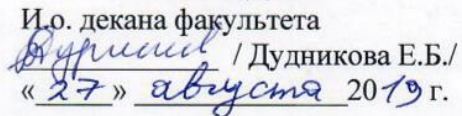 И.о. декана факультета
/ Дудникова Е.Б./
«27» августа 2019 г.